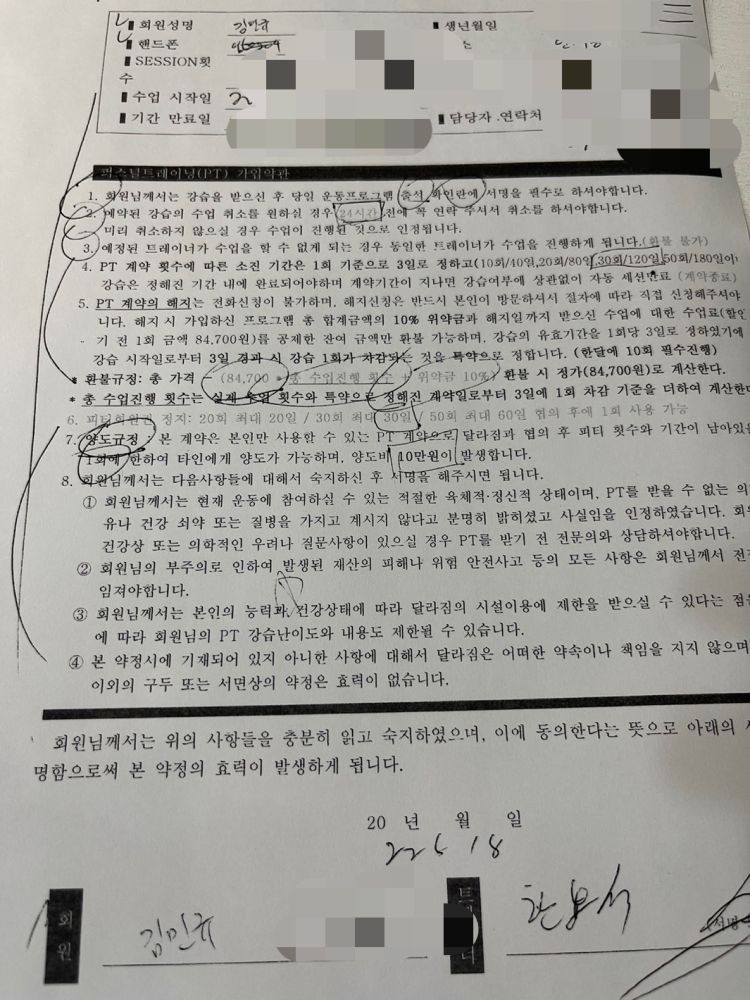 회원성명 김민규 생년월일
핸드폰
SESSION횟
수
수업 시작일 22
기간 만료일 담당자.연락처
퍼스널트레이닝(PT) 가입약관
1. 회원님께서는 강습을 받으신 후 당일 운동프로그램 출석 확인란에 서명을 필수로 하셔야합니다.
2. 예약된 강습의 수업 취소를 원하실 경우 24시간 전에 꼭 연락 주셔서 취소를 하셔야합니다.
미리 취소하지 않으실 경우 수업이 진행된 것으로 인정됩니다.
3. 예정된 트레이너가 수업을 할 수 없게 되는 경우 동일한 트레이너가 수업을 진행하게 됩니다.(환불 불가)
4. PT 계약 횟수에 따른 소진 기간은 1회 기준으로 3일로 정하고(10회/40일,20회/80일,30회/120일,50회/180일이
강습은 정해진 기간 내에 완료되어야하며 계약기간이 지나면 강습여부에 상관없이 자동 세션만료 (계약종료)
5. PT 계약의 해지는 전화신청이 불가하며, 해지신청은 반드시 본인이 방문하셔서 절차에 따라 직접 신청해주셔야
니다. 해지 시 가입하신 프로그램 총 합계금액의 10% 위약금과 해지일까지 받으신 수업에 대한 수업료(할인
기 전 1회 금액 84,700원)를 공제한 잔여 금액만 환불 가능하며, 강습의 유효기간을 1회당 3일로 정하였기에
강습 시작일로부터 3일 경과 시 강습 1회가 차감되는 것을 특약으로 정합니다. (한달에 10회 필수진행)
* 환불규정: 총 가격 - (84,700 * 총 수업진행 횟수 + 위약금 10%) 환불 시 정가(84,700원)로 계산한다.
* 총 수업진행 횟수는 실제 수업 횟수와 특약으로 정해진 계약일로부터 3일에 1회 차감 기준을 더하여 계산한다
6. 피티회원권 정지: 20회 최대 20일 / 30회 최대 30일 / 50회 최대 60일 협의 후에 1회 사용 가능
7. 양도규정 : 본 계약은 본인만 사용할 수 있는 PT 계약으로 달라짐과 협의 후 피티 횟수와 기간이 남아있을
1회에 한하여 타인에게 양도가 가능하며, 양도비 10만원이 발생합니다.
8. 회원님께서는 다음사항들에 대해서 숙지하신 후 서명을 해주시면 됩니다.
① 회원님께서는 현재 운동에 참여하실 수 있는 적절한 육체적·정신적 상태이며, PT를 받을 수 없는 의
유나 건강 쇠약 또는 질병을 가지고 계시지 않다고 분명히 밝히셨고 사실임을 인정하였습니다. 회
건강상 또는 의학적인 우려나 질문사항이 있으실 경우 PT를 받기 전 전문의와 상담하셔야합니다.
② 회원님의 부주의로 인하여 발생된 재산의 피해나 위험 안전사고 등의 모든 사항은 회원님께서 전
임져야합니다.
③ 회원님께서는 본인의 능력과 건강상태에 따라 달라짐의 시설이용에 제한을 받으실 수 있다는 점을
에 따라 회원님의 PT 강습난이도와 내용도 제한될 수 있습니다.
④ 본 약정시에 기재되어 있지 아니한 사항에 대해서 달라짐은 어떠한 약속이나 책임을 지지 않으며
이외의 구두 또는 서면상의 약정은 효력이 없습니다.
회원님께서는 위의 사항들을 충분히 읽고 숙지하였으며, 이에 동의한다는 뜻으로 아래의 서
명함으로써 본 약정의 효력이 발생하게 됩니다.
20 년 월 일
22 5 18
회원 김민규 (서명